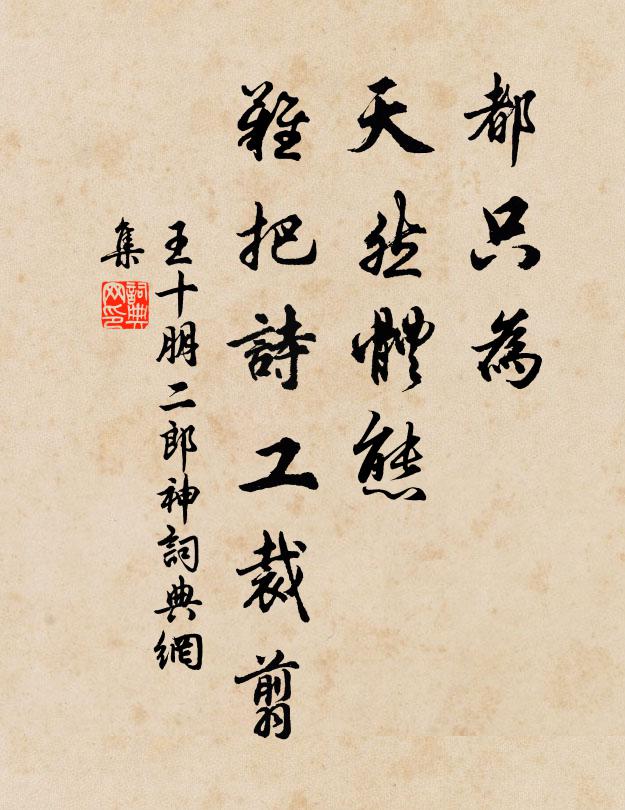 都只為
天然體態
難把詩工裁剪
王十朋二郎神詞典網
集
詞典
网印